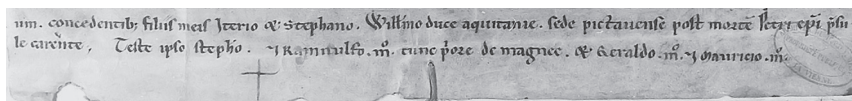 um. concedentib; filiis meis Iterio & Stephano. Willmo duce aquitanie. sede pictauense post mortē Petri epi p̄su
le carente. Teste ipso steph̄o. ⁊ Ramnulfo. m̊. tunc p̄ore de magnec. & Geraldo. m̊. ⁊ Mauricio. m̊.